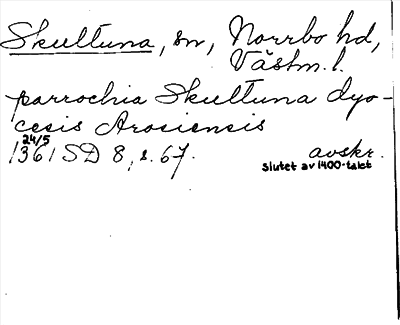 Skultuna, sn, Norrbo hd,
Västm. l.
parrochia Skultuna dyo-
cesis Arosiensis
24/5
1361 SD 8, s. 67. avskr.
Slutet av 1400-talet